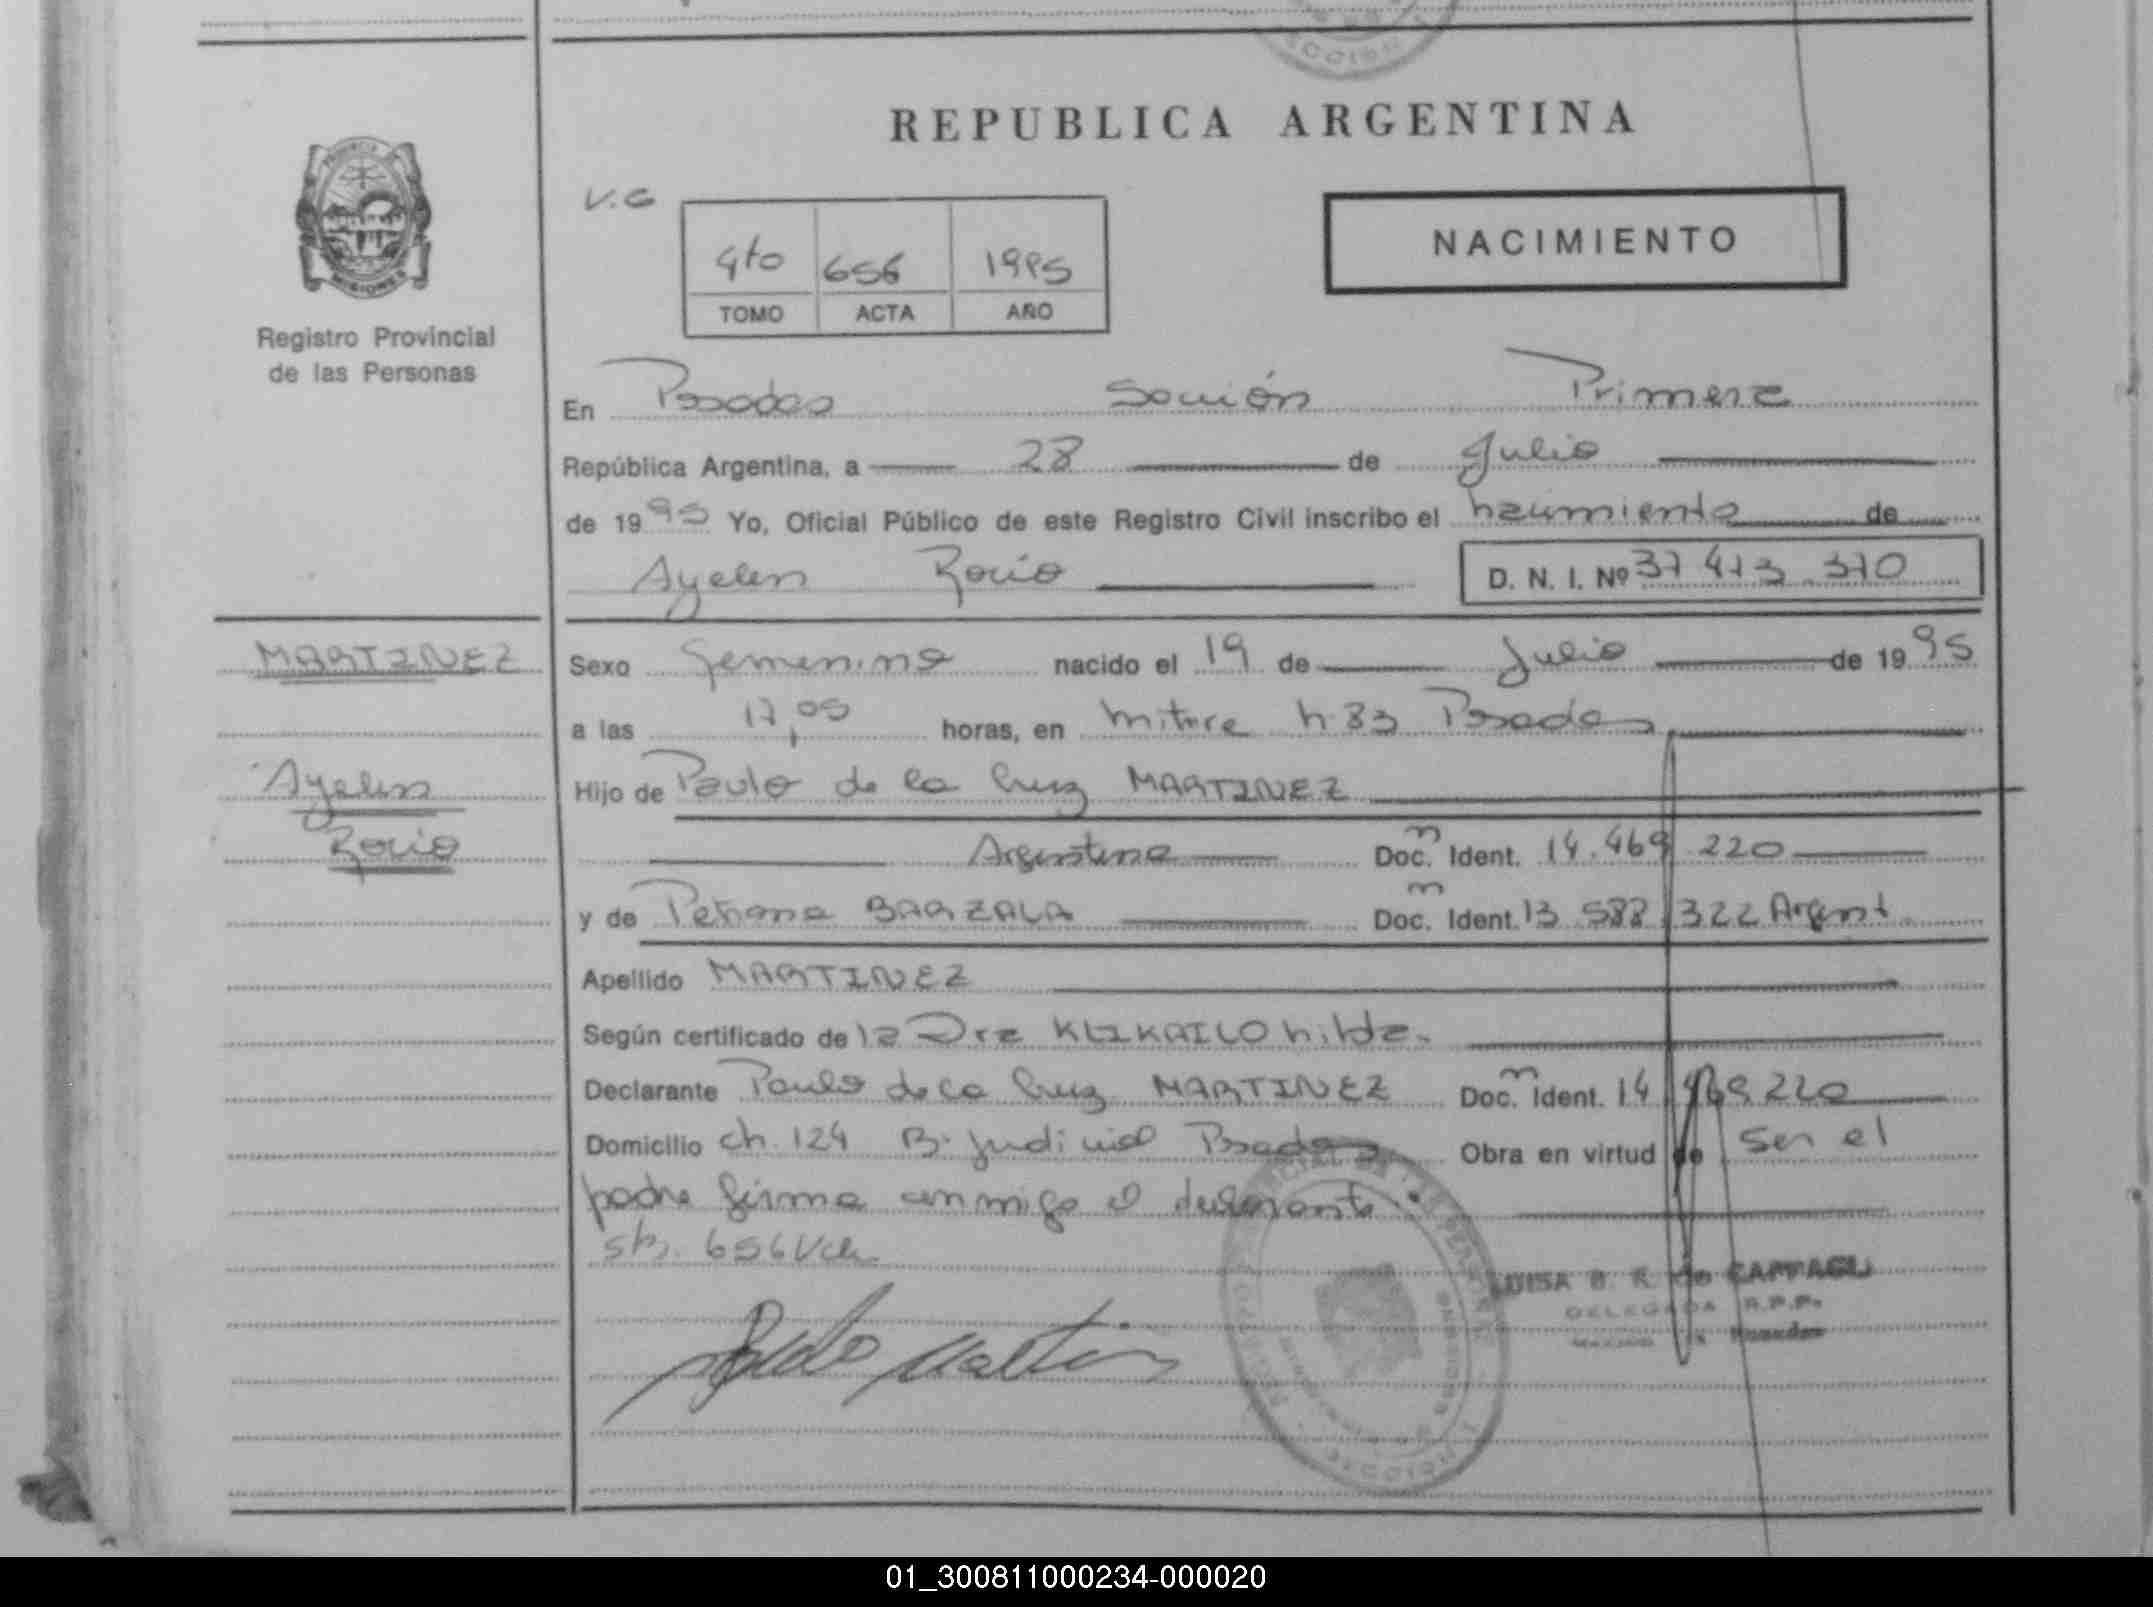 REPUBLICA ARGENTINA
V.G
4to 656 1995
TOMO ACTA AÑO
NACIMIENTO
PROVINCIA DE
MISIONES
Registro Provincial
de las Personas
En Posadas Sección Primera
República Argentina, a 28 de Julio
de 1995 Yo, Oficial Público de este Registro Civil inscribo el nacimiento de
Ayelen Rocio D. N. I. Nº 37 413 310
MARTINEZ
Ayelen
Rocio
Sexo Femenino nacido el 19 de Julio de 1995
a las 17,05 horas, en Mitre n 83 Posadas
Hijo de Paulo de la Cruz MARTINEZ
Argentina Doc. m Ident. 14.469 220
y de Petrona BARZALA Doc. m Ident. 13 588 322 Argent.
Apellido MARTINEZ
Según certificado de la Dra Hilda.
Declarante Paulo de la Cruz MARTINEZ Doc. m Ident. 14 469 220
Domicilio ch. 124 B. Judicial Posadas Obra en virtud de ser el
padre firma conmigo el declarante
656
LUISA B. R. de
DELEGADA R.P.P.
Posadas
SECCION 1
01_300811000234-000020